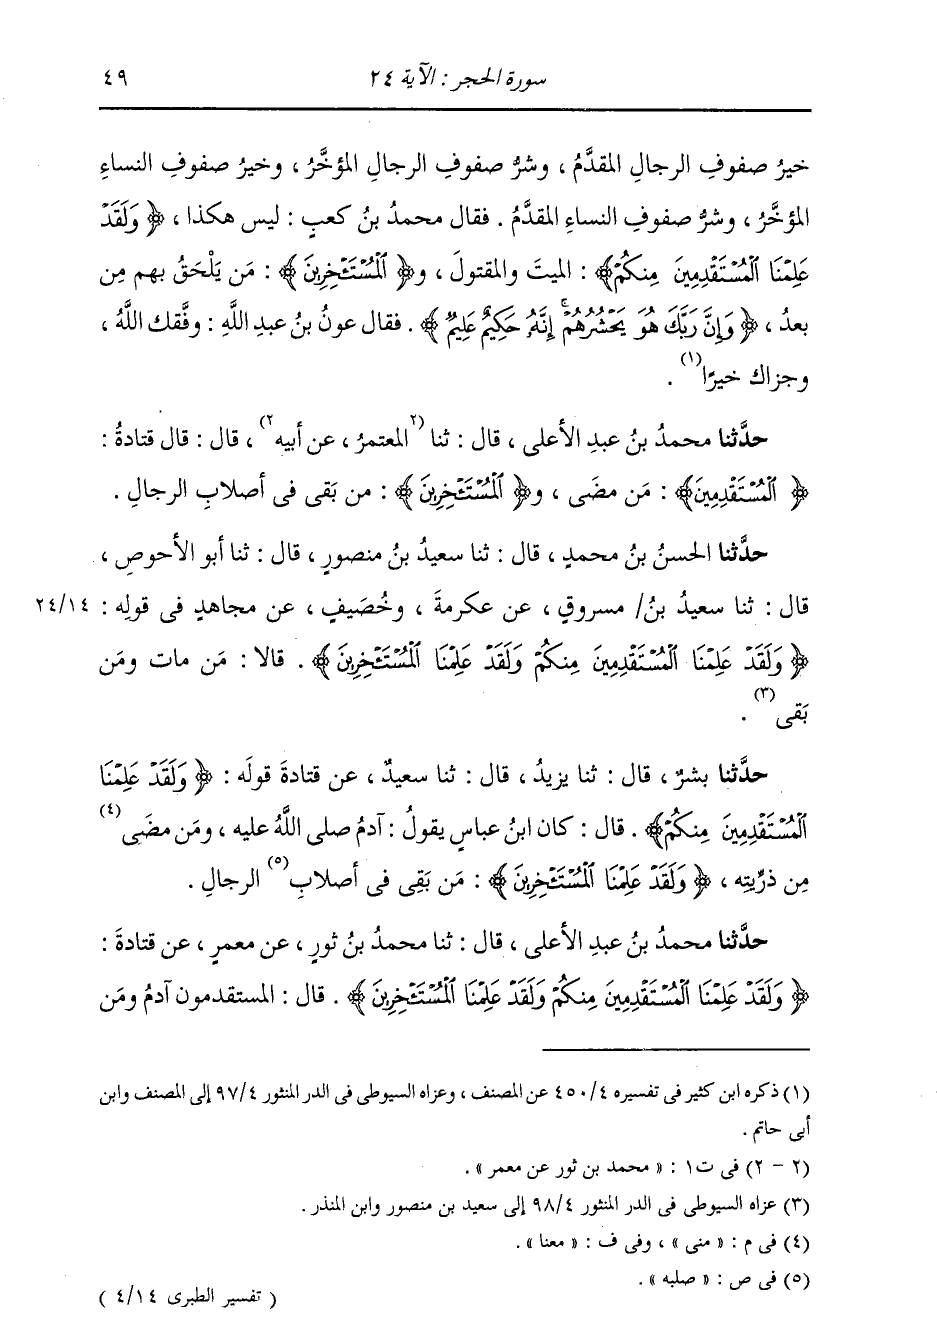 سورة الحجر : الآية ٢٤ ٤٩
خيرُ صفوفِ الرجالِ المقدَّمُ ، وشرُّ صفوفِ الرجالِ المؤخَّرُ ، وخيرُ صفوفِ النساءِ
المؤخَّرُ ، وشرُّ صفوفِ النساءِ المقدَّمُ . فقال محمدُ بنُ كعبٍ : ليس هكذا ، ﴿ وَلَقَدْ
عَلِمْنَا الْمُسْتَقْدِمِينَ مِنكُمْ﴾ : الميتَ والمقتولَ ، و﴿ الْمُسْتَـْٔخِرِينَ ﴾ : مَن يَلْحَقُ بهم مِن
بعدُ ، ﴿ وَإِنَّ رَبَّكَ هُوَ يَحْشُرُهُمْ ۚ إِنَّهُ حَكِيمٌ عَلِيمٌ ﴾ . فقال عونُ بنُ عبدِ اللَّهِ : وفَّقك اللَّهُ ،
وجزاك خيرًا(١) .
حدَّثنا محمدُ بنُ عبدِ الأعلى ، قال : ثنا (٢المعتمرُ ، عن أبيه٢) ، قال : قال قتادةُ :
﴿ الْمُسْتَقْدِمِينَ﴾ : مَن مضَى ، و﴿ الْمُسْتَـْٔخِرِينَ ﴾ : من بَقى فى أصلابِ الرجالِ .
حدَّثنا الحسنُ بنُ محمدٍ ، قال : ثنا سعيدُ بنُ منصورٍ ، قال : ثنا أبو الأحوصِ ،
قال : ثنا سعيدُ بنُ/ مسروقٍ ، عن عكرمةَ ، وخُصَيفٍ ، عن مجاهدٍ فى قولِه : ٢٤/١٤
﴿ وَلَقَدْ عَلِمْنَا الْمُسْتَقْدِمِينَ مِنكُمْ وَلَقَدْ عَلِمْنَا الْمُسْتَـْٔخِرِينَ ﴾ . قالا : مَن مات ومَن
بَقى(٣) .
حدَّثنا بشرٌ ، قال : ثنا يزيدُ ، قال : ثنا سعيدٌ ، عن قتادةَ قولَه : ﴿ وَلَقَدْ عَلِمْنَا
الْمُسْتَقْدِمِينَ مِنكُمْ﴾ . قال : كان ابنُ عباسٍ يقولُ : آدمُ صلى اللَّهُ عليه ، ومَن مضَى(٤)
مِن ذرِّيتِه ، ﴿ وَلَقَدْ عَلِمْنَا الْمُسْتَـْٔخِرِينَ ﴾ : مَن بَقِى فى أصلابِ(٥) الرجالِ .
حدَّثنا محمدُ بنُ عبدِ الأعلى ، قال : ثنا محمدُ بنُ ثورٍ ، عن معمرٍ ، عن قتادةَ :
﴿ وَلَقَدْ عَلِمْنَا الْمُسْتَقْدِمِينَ مِنكُمْ وَلَقَدْ عَلِمْنَا الْمُسْتَـْٔخِرِينَ ﴾ . قال : المستقدمون آدمُ ومَن
(١) ذكره ابن كثير فى تفسيره ٤/ ٤٥٠ عن المصنف ، وعزاه السيوطى فى الدر المنثور ٤/ ٩٧ إلى المصنف وابن
أبى حاتم .
(٢ - ٢) فى ت١ : « محمد بن ثور عن معمر » .
(٣) عزاه السيوطى فى الدر المنثور ٤/ ٩٨ إلى سعيد بن منصور وابن المنذر .
(٤) فى م : « منى » ، وفى ف : « معنا » .
(٥) فى ص : « صلبه » .
( تفسير الطبرى ٤/١٤ )